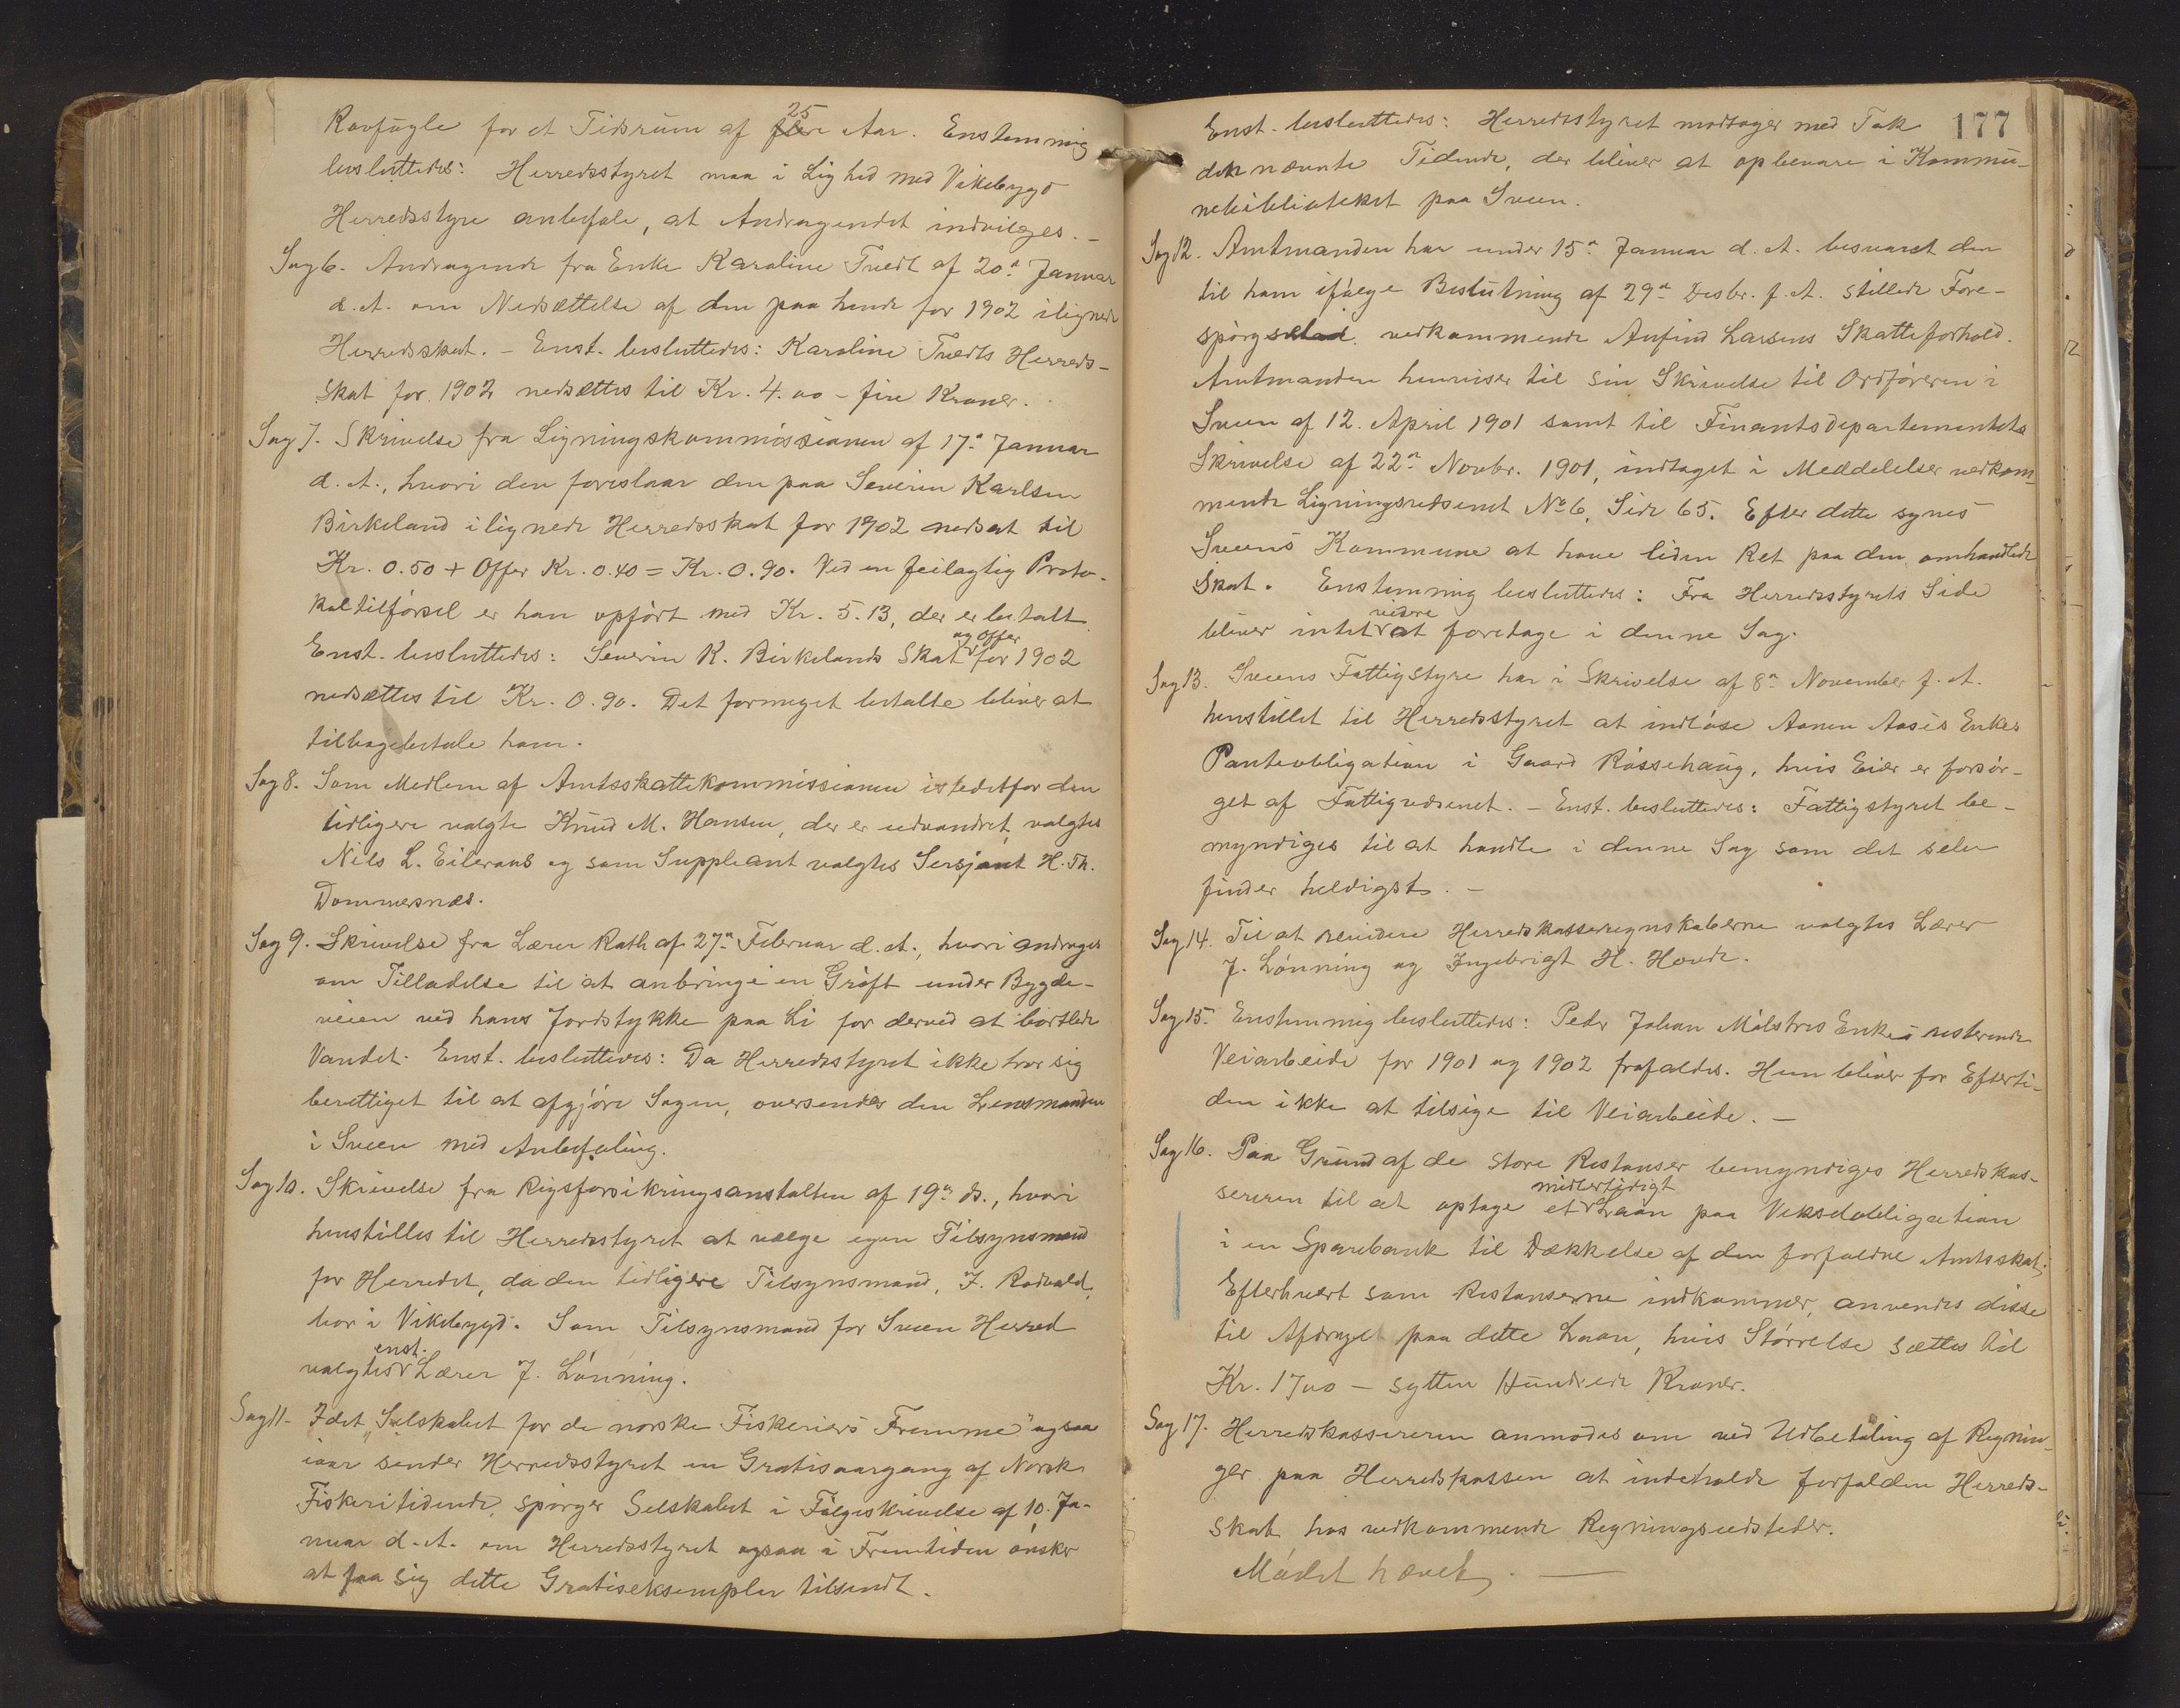 Rovfugle for et Tidsrum af 25 Aar. Enstemmig
besluttedes: Herredsstyret maa i Lighed med Vikebygd
Herredsstyre anbefale, at Andragendet indvilges. -
Sag 6. Andragende fra Enke Karoline Tvedt af 20de Januar
d. A. om Nedsættelse af den paa hende for 1902 ilignede
Herredsskat. - Enst. besluttedes: Karoline Tvedts Herreds-
skat for 1902 nedsættes til Kr. 4.00 - fire Kroner.
Sag 7. Skrivelse fra Ligningskommissionen af 17de Januar
d. A., hvori den foreslaar den paa Severin Karlsen
Birkeland ilignede Herredsskat for 1902 nedsat til
Kr. 0.50 + Offer Kr. 0.40 = Kr. 0.90. Ved en feilagtig Proto-
koltilførsel er han opført med Kr. 5.13, der er betalt.
Enst. besluttedes: Severin K. Birkelands Skat og Offer for 1902
nedsættes til Kr. 0.90. Det formeget betalte bliver at
tilbagebetale ham.
Sag 8. Som Medlem af Amtsskattekommissionen istedetfor den
tidligere valgte Knud M. Hansen, der er udvandret, valgtes
Nils L. Eilerаas og som Suppleant valgtes Sersjant H. Th.
Dommersnes.
Sag 9. Skrivelse fra Lærer Rath af 27de Februar d. A., hvori andrages
om Tilladelse til at anbringe en Grøft under Bygde-
veien ved hans Jordstykke paa Li for derved at bortlede
Vandet. Enst. besluttedes: Da Herredsstyret ikke tror sig
berettiget til at afgjøre Sagen, oversendes den Lensmanden
i Sveen med Anbefaling.
Sag 10. Skrivelse fra Rigsforsikringsanstalten af 19de ds., hvori
henstilles til Herredsstyret at vælge egen Tilsynsmand
for Herredet, da den tidligere Tilsynsmand, F. Rodvald,
bor i Vikebygd. Som Tilsynsmand for Sveen Herred
valgtes enst. Lærer J. Lønning.
Sag 11. Idet „Selskabet for de norske Fiskeriers Fremme" ogsaa
iaar sender Herredsstyret en Gratisaargang af Norsk
Fiskeritidende, spørger Selskabet i Følgeskrivelse af 10. Ja-
nuar d. A. om Herredsstyret ogsaa i Fremtiden ønsker
at faa sig dette Gratiseksemplar tilsendt.
177
Enst. besluttedes: Herredsstyret modtager med Tak
den nævnte Tidende, der bliver at opbevare i Kommu-
nebiblioteket paa Sveen.
Sag 12. Amtmanden har under 15de Januar d. A. besvaret den
til ham ifølge Beslutning af 29de Desbr. f. A. stillede Fore-
spørgsel vedkommende Anfind Larsens Skatteforhold.
Amtmanden henviser til sin Skrivelse til Ordføreren i
Sveen af 12. April 1901 samt til Finantsdepartementets
Skrivelse af 22de Novbr. 1901, indtaget i Meddelelser vedkom-
mende Ligningsvæsenet No 6, Side 65. Efter dette synes
Sveens Kommune at have liden Ret paa den omhandlede
Skat. Enstemmig besluttedes: Fra Herredsstyrets Side
bliver intet videre at foretage i denne Sag.
Sag 13. Sveens Fattigstyre har i Skrivelse af 8de November f. A.
henstillet til Herredsstyret at indløse Aanen Aases Enkes
Panteobligation i Gaard Røssehaug, hvis Eier er forsør-
get af Fattigvæsenet. - Enst. besluttedes: Fattigstyret be-
myndiges til at handle i denne Sag som det selv
finder heldigst. -
Sag 14. Til at revidere Herredskasseregnskaberne valgtes Lærer
J. Lønning og Ingebrigt H. Hovde.
Sag 15. Enstemmig besluttedes: Peder Johan Målstres Enkes resterende
Veiarbeide for 1901 og 1902 frafaldes. Hun bliver for Efterti-
den ikke at tilsige til Veiarbeide. -
Sag 16. Paa Grund af de store Restanser bemyndiges Herredskas-
sereren til at optage et midlertidigt Laan paa Vekselobligation
i en Sparebank til Dækkelse af den forfaldne Amtsskat;
Efterhvert som Restanserne indkommer, anvendes disse
til Afdrag paa dette Laan, hvis Størrelse sættes til
Kr. 1700 - sytten Hundrede Kroner.
Sag 17. Herredskassereren anmodes om ved Udbetaling af Regnin-
ger paa Herredskassen at indeholde forfalden Herreds-
skat hos vedkommende Regningsudsteder.
Mødet hævet. -